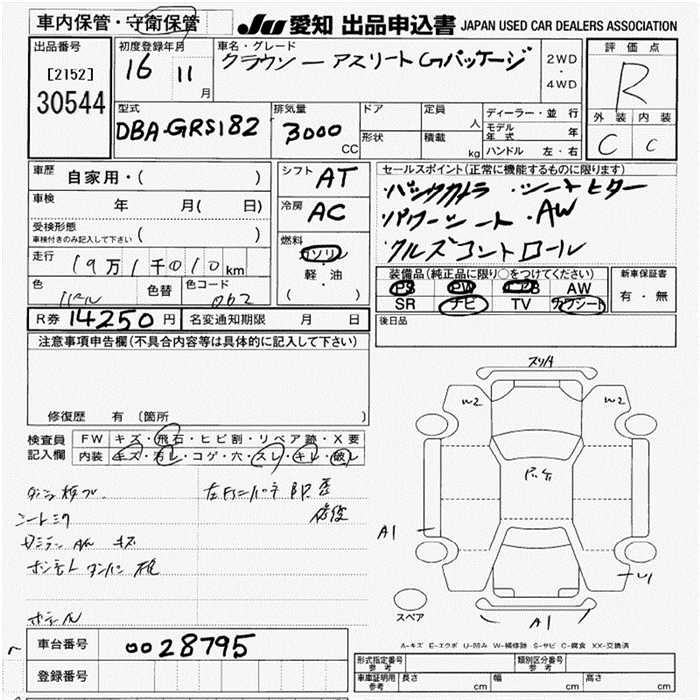 車内保管・守衛保管
JU 愛知 出品申込書 JAPAN USED CAR DEALERS ASSOCIATION
出品番号
[2152]
30544
初度登録年月
16 11月
車名・グレード
クラウン ー アスリートGパッケージ
2WD
・
4WD
評価点
R
外装 内装
C C
型式
DBA-GRS182
排気量
3000 CC
ドア
形状
定員 人
積載 kg
ディーラー・並行
モデル年式 年
ハンドル 左・右
車歴 自家用・( )
車検 年 月( 日)
受検形態
車検付きのみ記入して下さい ( )
走行 19万1千010km
色 色替 色コード
062
シフト AT
冷房 AC
燃料
ガソリン
軽・油
( )
R券 14250円 名変通知期限 月 日
セールスポイント(正常に機能するものに限ります)
・バックカメラ ・シートヒーター
・パワーシート ・AW
・クルーズコントロール
装備品(純正品に限り○をつけてください)
PS PW AW
SR ナビ TV カワシート
新車保証書
有・無
後日品
注意事項申告欄(不具合内容等は具体的に記入して下さい)
修復歴 有 (箇所 )
検査員
記入欄
FW キズ・飛石・ヒビ割・リペア跡・X要
内装 キズ・汚レ・コゲ・穴・スレ・キレ・破レ
W2 W2
A1
A1
スペア
A-キズ E-エクボ U-凹み W-補修跡 S-サビ C-腐食 XX-交換済
車台番号 0028795
登録番号
形式指定番号
参考
類別区分番号
参考
車庫証明用
参考
長さ cm 幅 cm 高さ cm